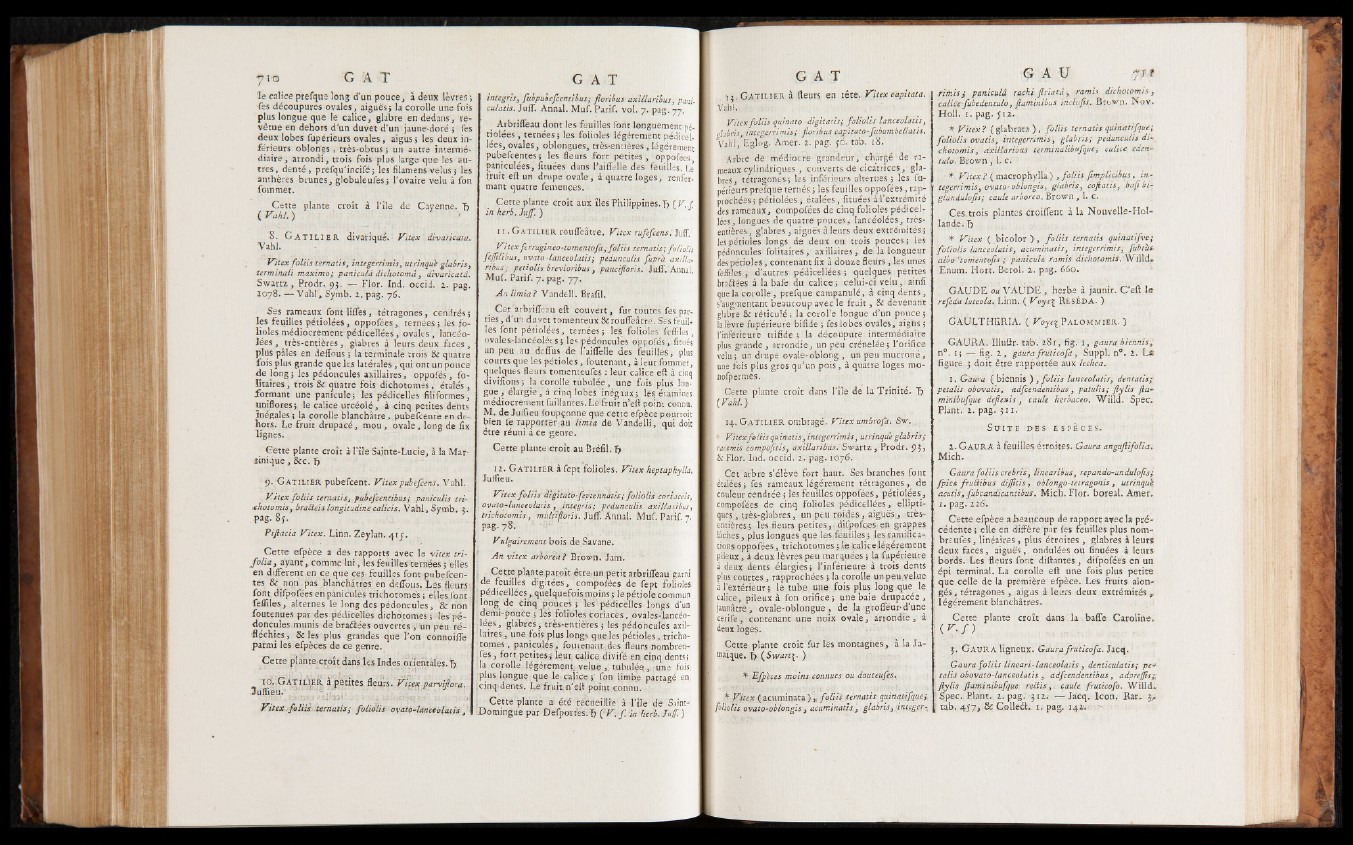 710 G A T
le calice presque long d'un pouce, à deux lèvres;
ses découpures ovales, aiguës; la corolle une fois
plus longue que le calice, glabre en dedans, re-
vêtue en dehors d'un duvet d'un jaune-doré; ses
deux lobes supérieurs ovales, aigus; les deux in-
férieurs oblongs, très-obtus; un autre intermé-
diaire, arrondi, trois fois plus large que les au-
tres, denté, presqu'incisé; les filamens velus; les
anthères brunes, globuleuses; l'ovaire velu à son
sommet.
Cette plante croît à l'île de Cayenne. ♄
( Vahl. )
8. GATILIER divariqué. Vitex divaricata.
Vahl.
Vitex foliis ternatis, integerrimis, utrinquè glabris,
terminali maximo; paniculâ dichotomâ, divaricatâ.
Swartz, Prodr. 93. — Flor. Ind. occid. 2. pag.
1078. — Vahl, Symb. 2. pag. 76.
Ses rameaux sont lisses, tétragones, cendrés;
les feuilles pétiolées, opposées, ternées; les fo-
lioles médiocrement pédicellées, ovales, lancéo-
lées, très-entières, glabres à leurs deux faces,
plus pâles en dessous; la terminale trois & quatre
fois plus grande que les latérales, qui ont un pouce
de long; les pédoncules axillaires, opposés, so-
litaires, trois & quatre fois dichotomes, étalés,
formant une panicule; les pédicelles filiformes,
uniflores; le calice urcéolé, à cinq petites dents
inégales; la corolle blanchâtre, pubescente en de-
hors. Le fruit drupacé, mou, ovale, long de six
lignes.
Cette plante croît à l'île Sainte-Lucie, à la Mar-
tinique, &c. ♄
9. GATILIER pubescent. Vitex pubescens. Vahl.
Vitex foliis ternatis, pubescentibus; paniculis tri-
chotomis, bracteis longitudine calicis. Vahl, Symb. 3.
pag. 85.
Pistacia Vitex. Linn. Zeylan. 415.
Cette espèce a des rapports avec le vitex tri-
folia, ayant, comme lui, les feuilles ternées; elles
en diffèrent en ce que ces feuilles sont pubescen-
tes & non pas blanchâtres en dessous. Les fleurs
sont disposées en panicules trichotomes; elles sont
sessiles, alternes le long des pédoncules, & non
soutenues par des pédicelles dichotomes; les pé-
doncules munis de bractées ouvertes, un peu ré-
fléchies, & les plus grandes que l'on connoisse
parmi les espèces de ce genre.
Cette plante croît dans les Indes orientales. ♄
10. GATILIER à petites fleurs. Vitex parviflora.
Jussieu.
Vitex foliis ternatis; foliolis ovato-lanceolatis,
G A T
integris, subpubescentibus; floribus axillaribus, pani-
culatis. Juss. Annal. Mus. Paris. vol. 7. pag. 77.
Arbrisseau dont les feuilles sont longuement pé-
tiolées, ternées; les folioles légérement pédicel-
lées, ovales, oblongues, très-entières, légérement
pubescentes; les fleurs fort petites, opposées,
paniculées, situées dans l'aisselle des feuilles. Le
fruit est un drupe ovale, à quatre loges, renfer-
mant quatre semences.
Cette plante croît aux îles Philippines. ♄ ( V. s.
in herb. Juss. )
11. GATILIER roussâtre. Vitex rufescens. Juss.
Vitex ferrugineo-tomentosa, foliis ternatis; foliolis
sessilibus, ovato-lanceolatis; pedunculis suprà axilla-
ribus, petiolis brevioribus, paucifloris. Juss. Annal.
Mus. Paris. 7. pag. 77.
An limia? Vandell. Brasil.
Cet arbrisseau est couvert, sur toutes ses par-
ties, d'un duvet tomenteux & roussâtre. Ses feuil-
les sont pétiolées, ternées; les folioles sessiles,
ovales-lancéolées; les pédoncules opposés, situés
un peu au dessus de l'aisselle des feuilles, plus
courts que les pétioles, soutenant, à leur sommet,
quelques fleurs tomenteuses: leur calice est à cinq
divisions; la corolle tubulée, une fois plus lon-
gue, élargie, à cinq lobes inégaux; les étamines
médiocrement saillantes. Le fruit n'est point connu.
M. de Jussieu soupçonne que cette espèce pourroit
bien se rapporter au limia de Vandelli, qui doit
être réuni à ce genre.
Cette plante croît au Brésil. ♄
12. GATILIER à sept folioles. Vitex heptaphylla.
Jussieu.
Vitex foliis digitato-septennatis; foliolis coriaceis,
ovato-lanceolatis, integris; pedunculis axillaribus,
trichotomis, multifloris. Juss. Annal. Mus. Paris. 7.
pag. 78.
Vulgairement bois de Savane.
An vitex arborea? Brown. Jam.
Cette plante paroît être un petit arbrisseau garni
de feuilles digitées, composées de sept folioles
pédicellées, quelquefois moins; le pétiole commun
long de cinq pouces; les pédicelles longs d'un
demi-pouce; les folioles coriaces, ovales-lancéo-
lées, glabres, très-entières; les pédoncules axil-
laires, une fois plus longs que les pétioles, tricho-
tomes, paniculés, soutenant des fleurs nombreu-
ses, fort petites; leur calice divisé en cinq dents;
la corolle légérement velue, tubulée, une fois
plus longue que le calice; son limbe partagé en
cinq dents. Le fruit n'est point connu.
Cette plante a été recueillie à l'île de Saint-
Domingue par Desportes. ♄ ( V. s. in herb. Juss. )
G A T
13. GATILIER à fleurs en tête. Vitex capitata.
Vahl.
Vitex foliis quinato digitatis; foliolis lanceolatis,
glabris, integerrimis; floribus capitato-subumbellatis.
Vahl, Eglog. Amer. 2. pag. 56. tab. 18.
Arbre de médiocre grandeur, chargé de ra-
meaux cylindriques, couverts de cicatrices, gla-
bres, tétragones; les inférieurs alternes; les su-
périeurs presque ternés; les feuilles opposées, rap-
prochées; pétiolées, étalées, situées à l'extrémité
des rameaux, composées de cinq folioles pédicel-
lées, longues de quatre pouces, lancéolées, très-
entières, glabres, aiguës à leurs deux extrémités;
les pétioles longs de deux ou trois pouces; les
pédoncules solitaires, axillaires, de la longueur
des pétioles, contenant six à douze fleurs, les unes
sessiles, d'autres pédicellées; quelques petites
bractées à la base du calice; celui-ci velu, ainsi
que la corolle, presque campanulé, à cinq dents,
s'augmentant beaucoup avec le fruit, & devenant
glabre & réticulé; la corolle longue d'un pouce;
la lèvre supérieure bifide; ses lobes ovales, aigus;
l'inférieure trifide; la découpure intermédiaire
plus grande, arrondie, un peu crénelée; l'orifice
velu; un drupe ovale-oblong, un peu mucroné,
une fois plus gros qu'un pois, à quatre loges mo-
nospermes.
Cette plante croît dans l'île de la Trinité. ♄
( Vahl. )
14. GATILIER ombragé. Vitex umbrosa. Sw.
Vitex foliis quinatis, integerrimis, utrinquè glabris;
racemis compositis, axillaribus. Swartz, Prodr. 93,
& Flor. Ind. occid. 2. pag. 1076.
Cet arbre s'élève fort haut. Ses branches sont
étalées; ses rameaux légérement tétragones, de
couleur cendrée; les feuilles opposées, pétiolées,
composées de cinq folioles pédicellées, ellipti-
ques, très-glabres, un peu roides, aiguës, très-
entières; les fleurs petites, disposées en grappes
lâches, plus longues que les feuilles; les ramifica-
tions opposées, trichotomes; le calice légérement
pileux, à deux lèvres peu marquées; la supérieure
à deux dents élargies; l'inférieure à trois dents
plus courtes, rapprochées; la corolle un peu velue
à l'extérieur; le tube une fois plus long que le
calice, pileux à son orifice; une baie drupacée,
jaunâtre, ovale-oblongue, de la grosseur d'une
cerise, contenant une noix ovale, arrondie, à
deux loges.
Cette plante croît sur les montagnes, à la Ja-
maïque. ♄ ( Swartz. )
* Espèces moins connues ou douteuses.
* Vitex (acuminata), foliis ternatis quinatisque;
foliolis ovato-oblongis, acuminatis, glabris, integer-
G A U 711
rimis; paniculâ rachi striatâ, ramis dichotomis,
calice subedentulo, staminibus inclusis. Brown. Nov.
Holl. 1. pag. 512.
* Vitex? (glabrata), foliis ternatis quinatisque;
foliolis ovatis, integerrimis, glabris; pedunculis di-
chotomis, axillaribus terminalibusque; calice eden-
tulo. Brown, l. c.
* Vitex? (macrophylla), foliis simplicibus, in-
tegerrimis, ovato-oblongis, glabris, costatis, basi bi-
glandulosis; caule arboreo. Brown, l. c.
Ces trois plantes croissent à la Nouvelle-Hol-
lande. ♄
* Vitex ( bicolor ), foliis ternatis quinatisve;
foliolis lanceolatis, acuminatis, integerrimis, subtùs
albo-tomentosis; paniculâ ramis dichotomis. Willd.
Enum. Hort. Berol. 2. pag. 660.
GAUDE ou VAUDE, herbe à jaunir. C'est le
reseda luteola. Linn. ( Voyez RÉSÉDA. )
GAULTHERIA. ( Voyez PALOMMIER. )
GAURA. Illustr. tab. 281, fig. 1, gaura biennis,
n°. 1; — fig. 2, gaura fruticosa, Suppl. n°. 2. La
figure 3 doit être rapportée aux lechea.
1. Gaura (biennis), foliis lanceolatis, dentatis;
petalis obovatis, adscendentibus, patulis; stylis sta-
minibusque deflexis, caule herbaceo. Willd. Spec.
Plant. 2. pag. 311.
SUITE DES ESPÈCES.
2. GAURA à feuilles étroites. Gaura angustifolia.
Mich.
Gaura foliis crebris, linearibus, repando-undulosis;
spicâ fructibus dissitis, oblongo-tetragonis, utrinquè
acutis, subcandicantibus. Mich. Flor. boreal. Amer.
1. pag. 226.
Cette espèce a beaucoup de rapport avec la pré-
cédente; elle en diffère par ses feuilles plus nom-
breuses, linéaires, plus étroites, glabres à leurs
deux faces, aiguës, ondulées ou sinuées à leurs
bords. Les fleurs sont distantes, disposées en un
épi terminal. La corolle est une fois plus petite
que celle de la première espèce. Les fruits alon-
gés, tétragones, aigus à leurs deux extrémités,
légérement blanchâtres.
Cette plante croît dans la basse Caroline.
( V. s. )
3. GAURA ligneux. Gaura fruticosa. Jacq.
Gaura foliis lineari-lanceolatis, denticulatis; pe-
talis obovato-lanceolatis, adscendentibus, adpressis;
stylis staminibusque rectis, caule fruticoso. Willd.
Spec. Plant. 2. pag. 312. — Jacq. Icon. Rar. 3.
tab. 457, & Collect. 1. pag. 142.